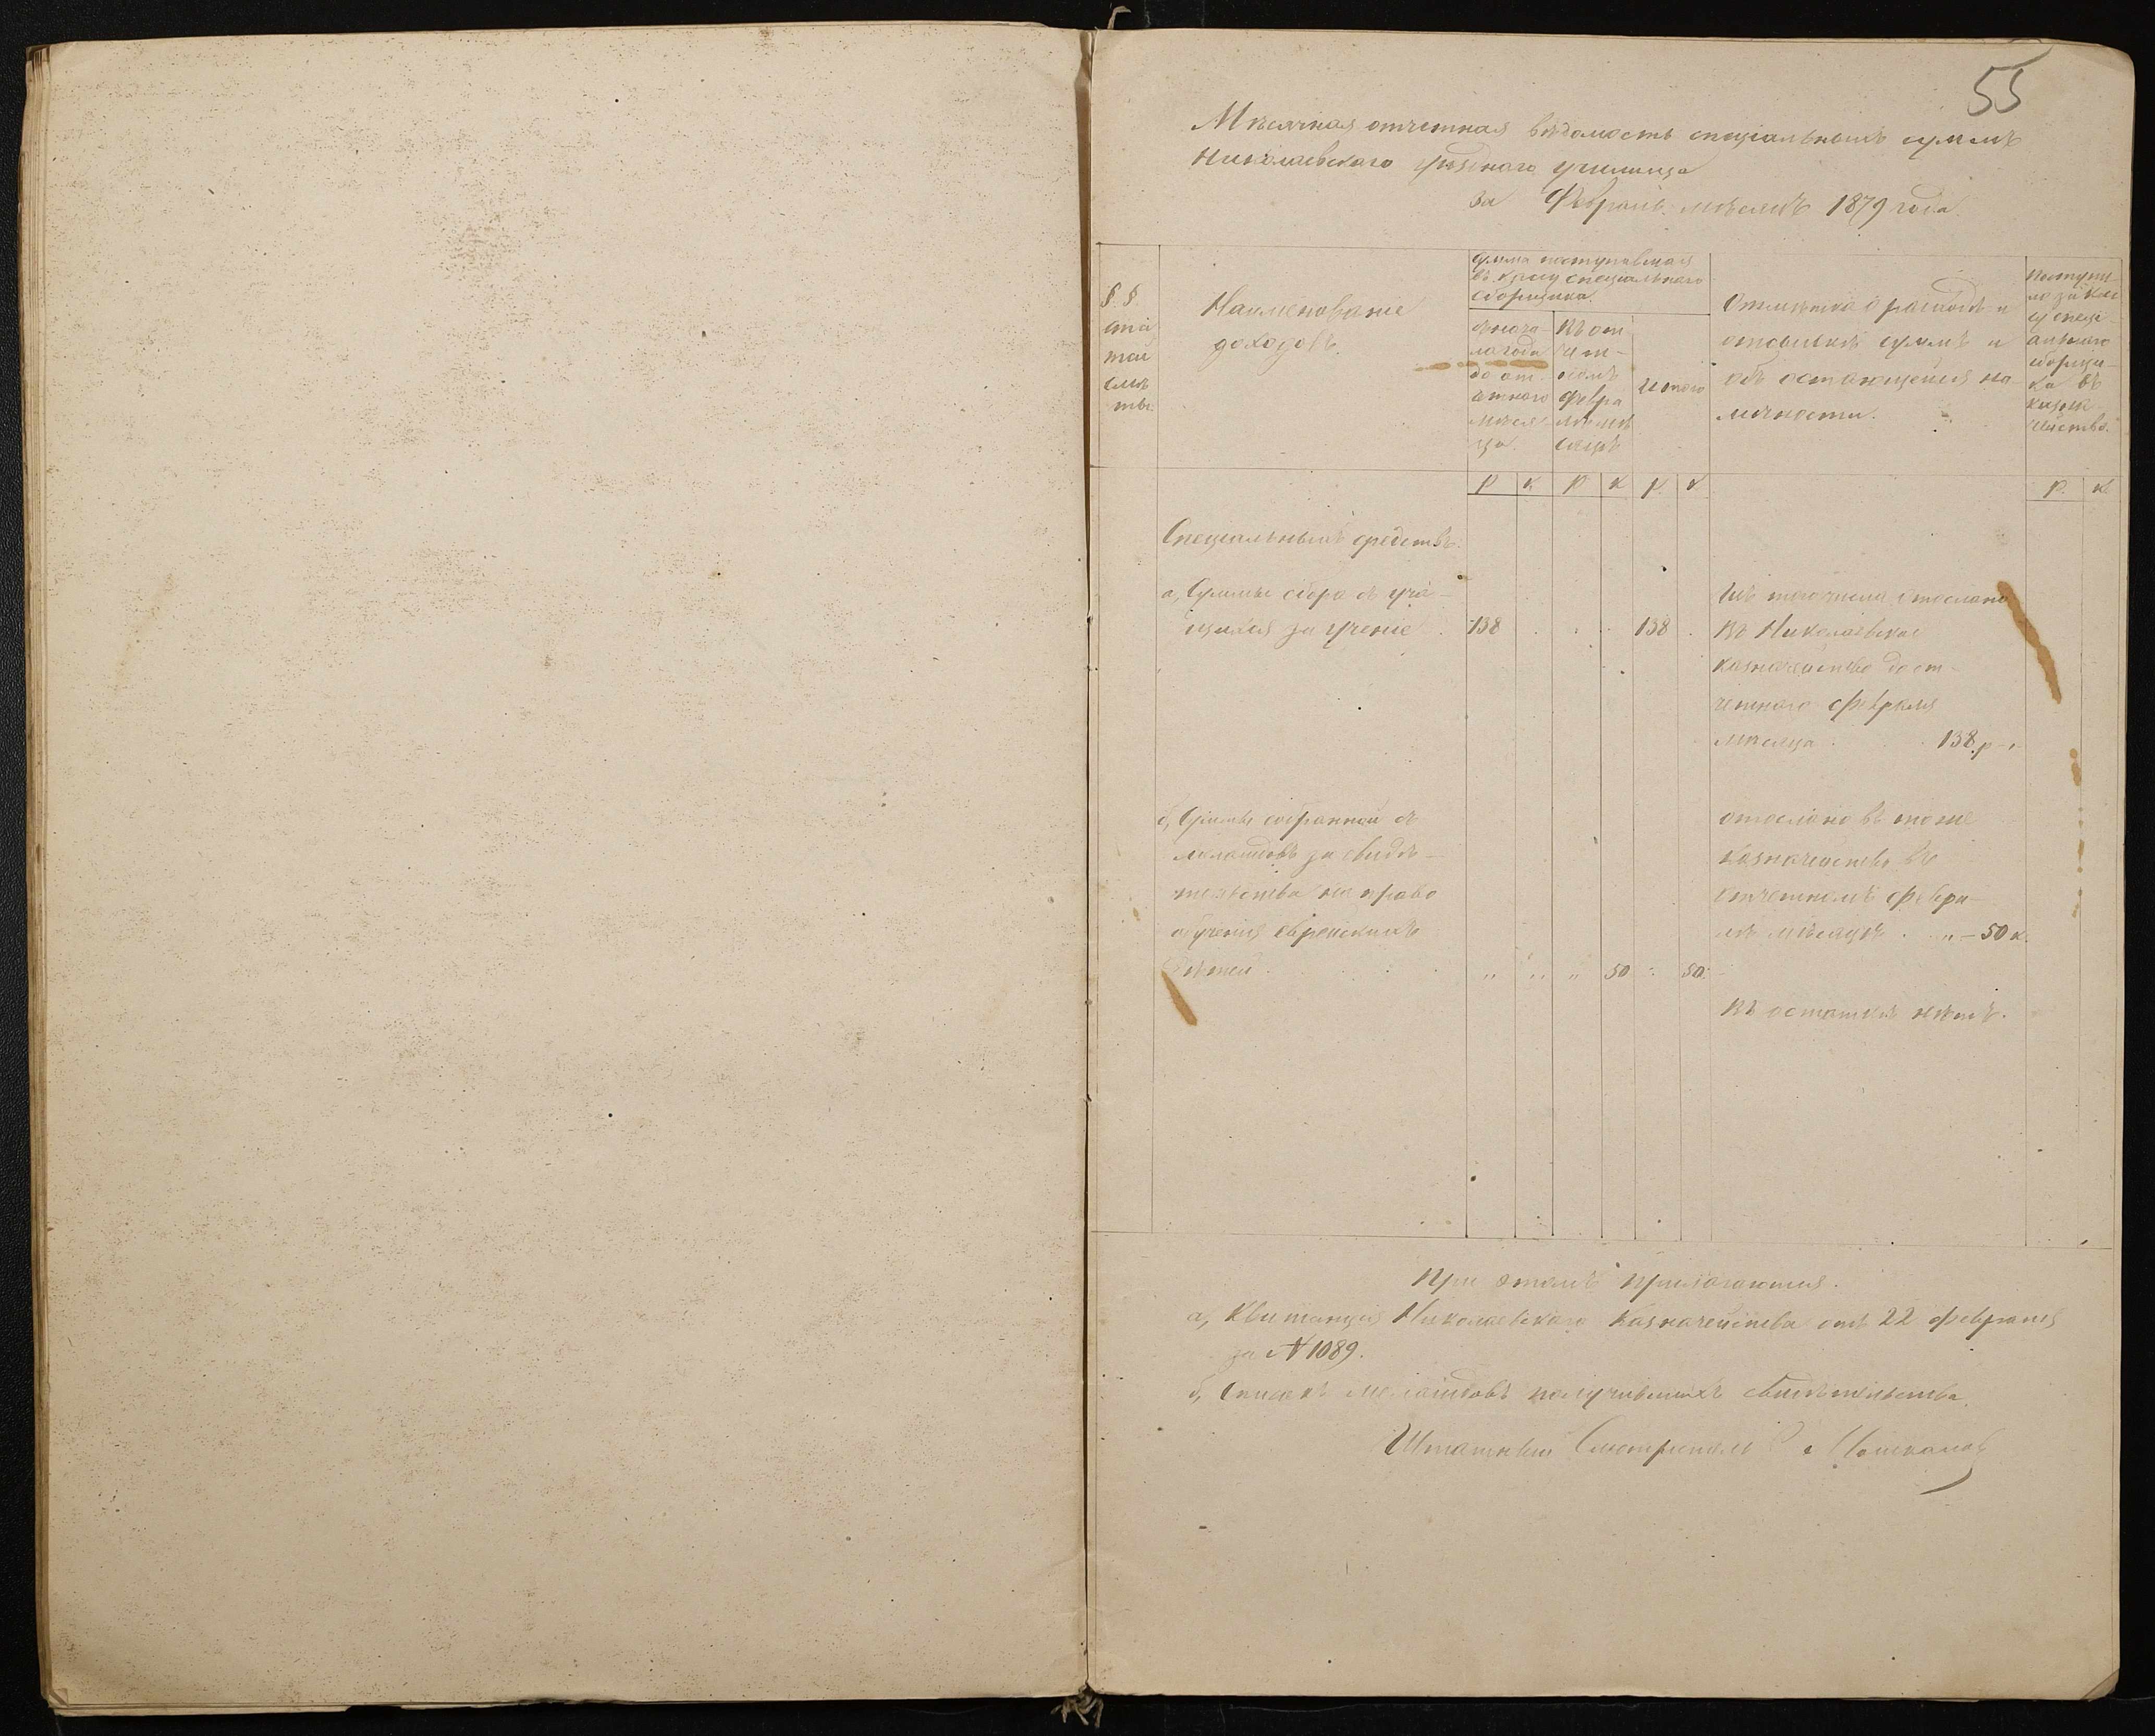 55
Мѣсячная отчетная вѣдомость спеціальнымъ суммамъ
Николаевскаго уѣзднаго училища
за Февраль мѣсяцъ 1879 года.
§ §
ста
тей
смѣ
ты.
Наименованіе
доходовъ.
Сумма поступившая
въ кассу спеціальнаго
сборщика.
съ нача-
ла года
до от-
четнаго
мѣся-
ца.
Въ от-
чет-
номъ
Февра
лѣ мѣ
сяцѣ
Итого
Отмѣтка о расходѣ и
отсылкѣ суммъ и
объ остающейся на-
личности.
Поступи-
ло за кас
су спеці-
альнаго
сборщи-
ка въ
казна-
чейство.
Р К Р К Р К Р. К
Спеціальныхъ средствъ.
а, Суммы сбора съ уча-
щихся за ученіе . 138 . . . 138 .
Изъ того числа отослано
въ Николаевское
казначейство до от-
четнаго февраля
мѣсяца . 138 р –"
б, Суммы собранной съ
меламдовъ за свидѣ-
тельства на право
обученія еврейскихъ
дѣтей . " " " 50 " 50.
отослано въ тоже
казначейство въ
отчетномъ февра-
лѣ мѣсяцѣ . " – 50 к.
Въ остаткѣ нѣтъ.
При этомъ прилагаются.
а, Квитанція Николаевскаго Казначейства отъ 22 февраля
за № 1089.
б, Списокъ меламдовъ получившихъ свидѣтельства.
Штатный Смотритель